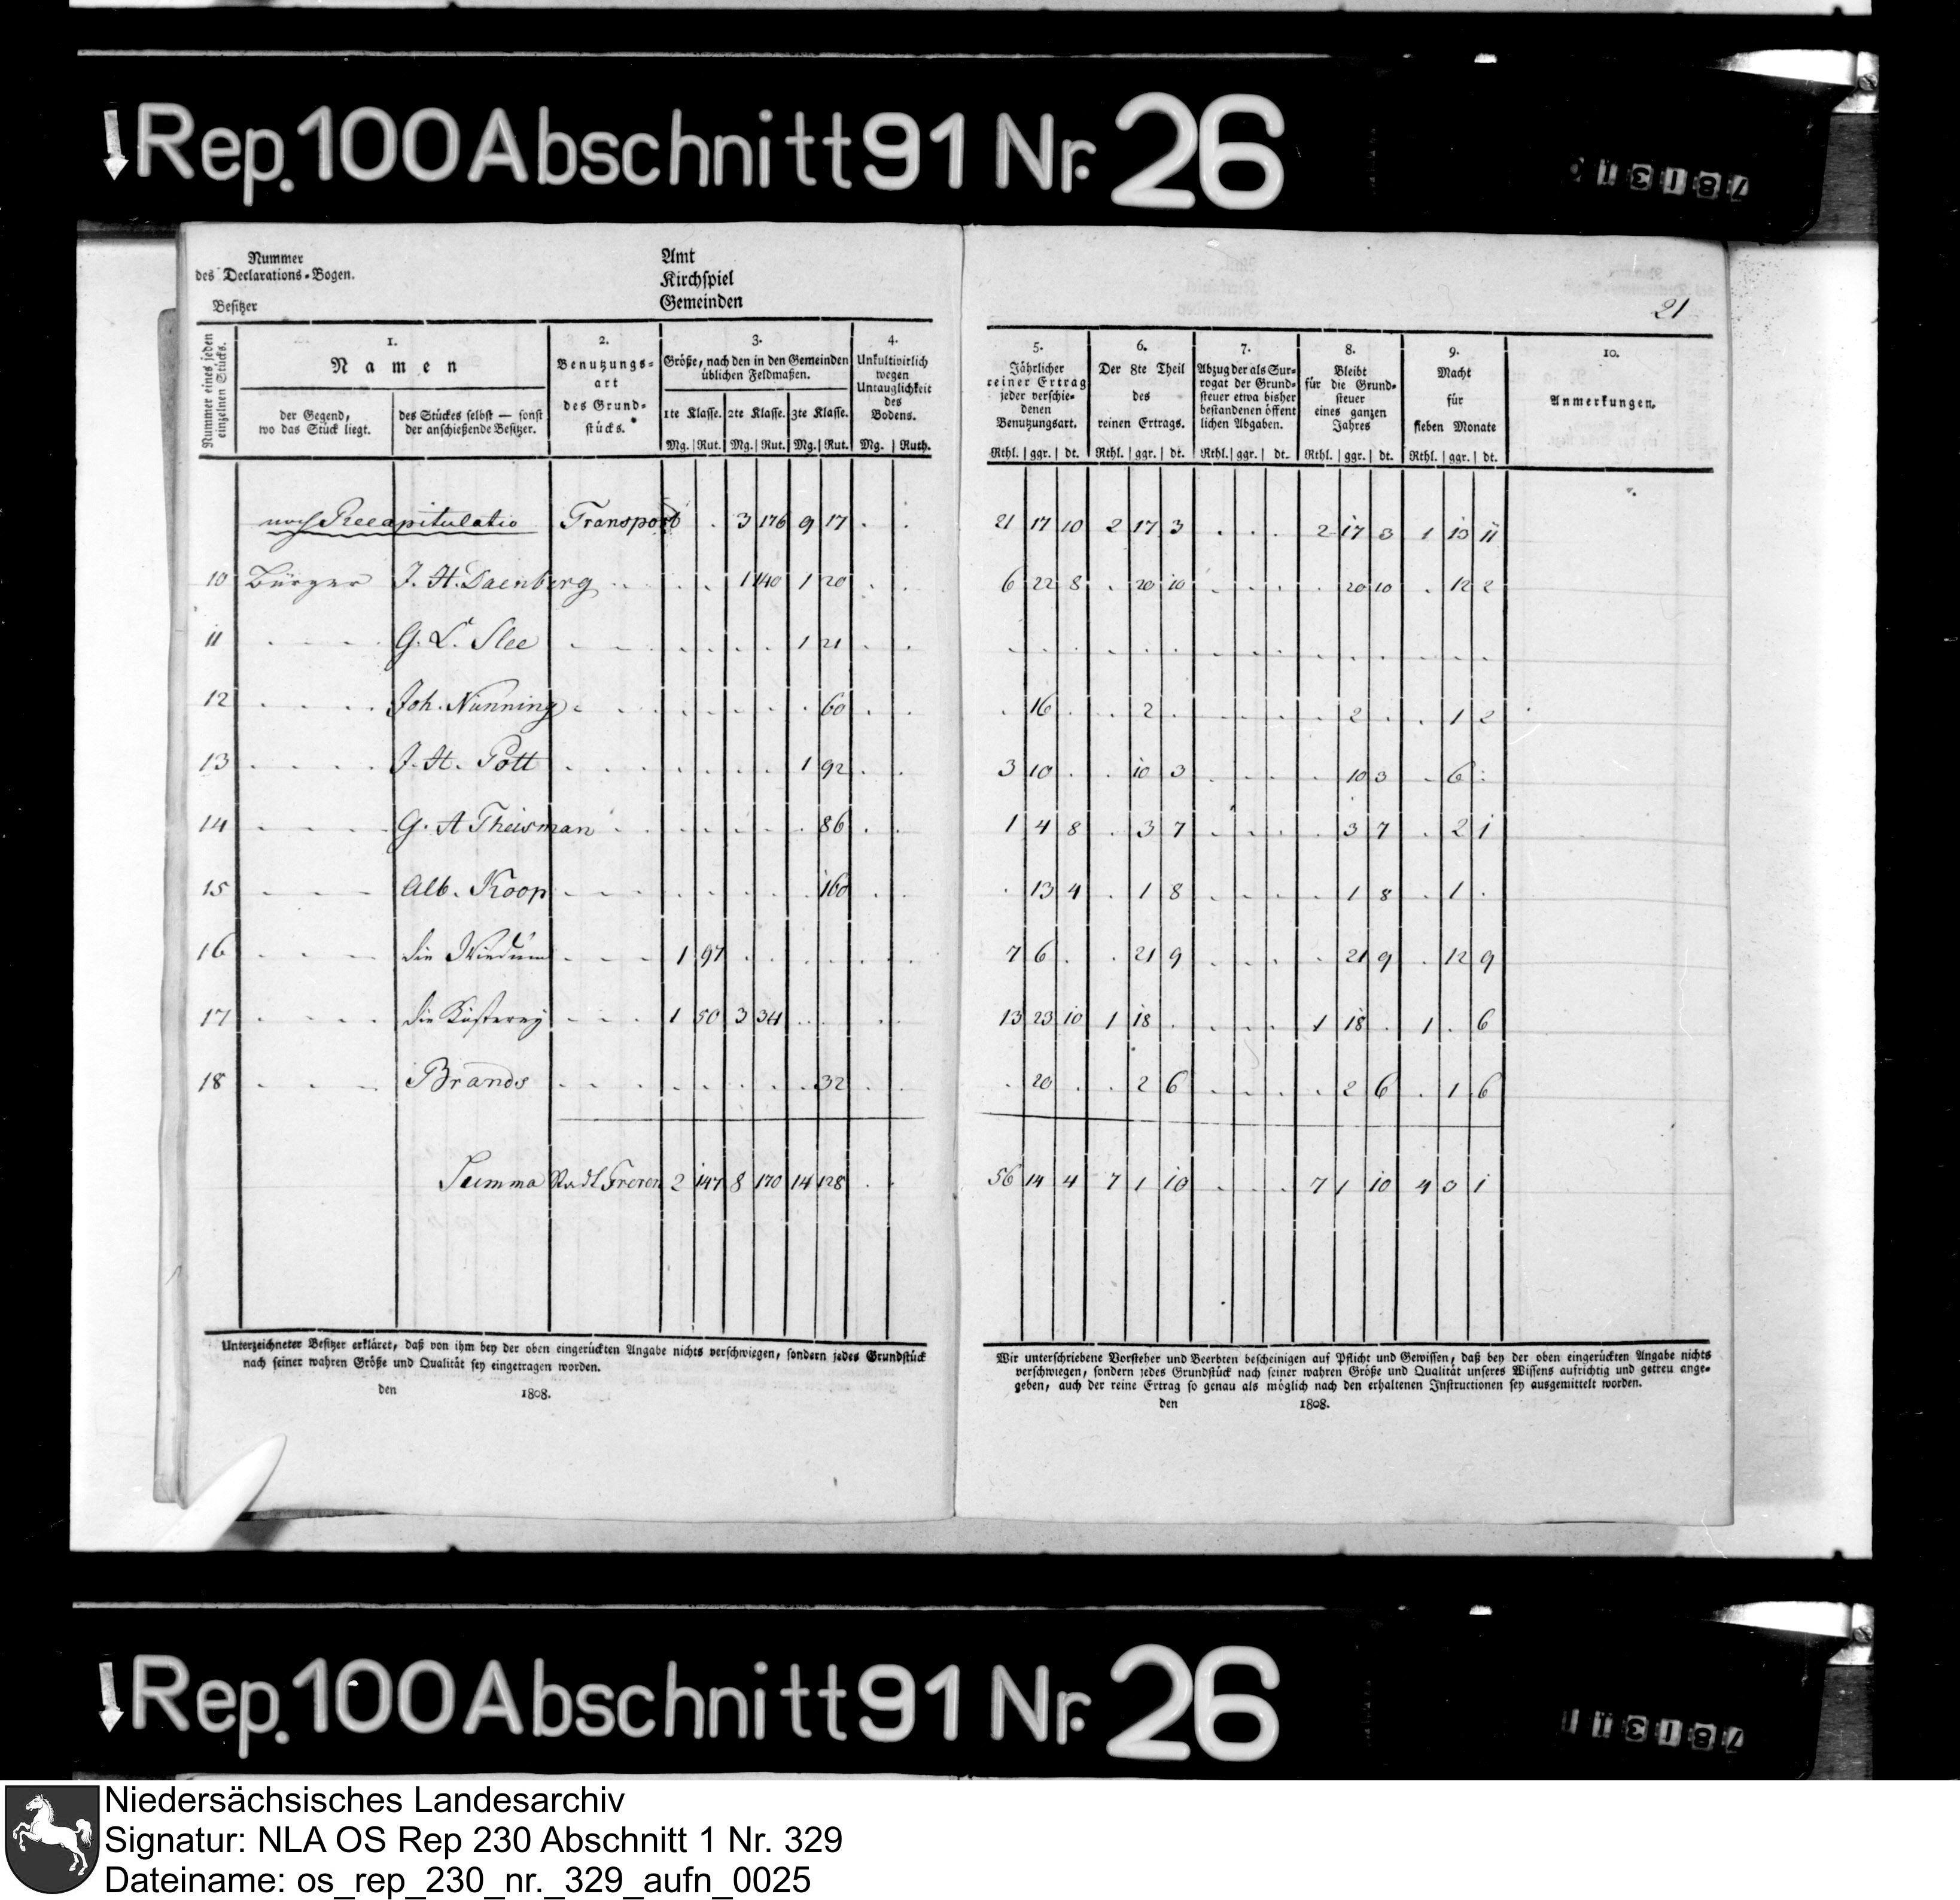 Rep. 100 Abschnitt 91 Nr. 26
78131
Nummer
des Declarations-Bogen.
Besitzer
Amt
Kirchspiel
Gemeinden
21
Nummer eines jeden einzelnen Stücks.
1.
Namen
der Gegend, wo das Stück liegt.
des Stückes selbst — sonst der anschießende Besitzer.
2.
Benutzungs-art des Grund-stücks.
3.
Größe, nach den in den Gemeinden üblichen Feldmaßen.
1te Klasse. 2te Klasse. 3te Klasse.
Mg. Rut. Mg. Rut. Mg. Rut.
4.
Unkultivirlich wegen Untauglichkeit des Bodens.
Mg. Ruth.
5.
Jährlicher reiner Ertrag jeder verschie-denen Benutzungsart.
Rthl. ggr. dt.
6.
Der 8te Theil des reinen Ertrags.
Rthl. ggr. dt.
7.
Abzug der als Sur-rogat der Grund-steuer etwa bisher bestandenen öffent lichen Abgaben.
Rthl. ggr. dt.
8.
Bleibt für die Grund-steuer eines ganzen Jahres
Rthl. ggr. dt.
9.
Macht für sieben Monate
Rthl. ggr. dt.
10.
Anmerkungen.
noch Recapitulatio Transport . 3 176 9 17 . . 21 17 10 2 17 3 . . . 2 17 3 1 13 11
10 Bürger J. H. Daenberg . . . . 1 140 1 20 . . 6 22 8 . 20 10 . . . . 20 10 . 12 2
11 G. L. Slee 1 21
12 Joh. Nünning 60 . 16 . . 2 . . 2 . . 1 2
13 J. H. Pott 1 92 3 10 . . 10 3 10 3 . 6 .
14 G. A Theisman 86 1 4 8 . 3 7 3 7 . 2 1
15 Alb. Koop 160 . 13 4 . 1 8 1 8 . 1 .
16 die Wiedum 1 97 7 6 . . 21 9 . 21 9 . 12 9
17 die Küsterey 1 50 3 34 13 23 10 1 18 . 1 18 . 1 . 6
18 Brands 32 . 20 . . 2 6 2 6 . 1 6
Summa Stadt Freren 2 147 8 170 14 128 . . 56 14 4 7 1 10 . . . 7 1 10 4 3 1
Unterzeichneter Besitzer erkläret, daß von ihm bey der oben eingerückten Angabe nichts verschwiegen, sondern jedes Grundstück
nach seiner wahren Größe und Qualität sey eingetragen worden.
den 1808.
Wir unterschriebene Vorsteher und Beerbten bescheinigen auf Pflicht und Gewissen, daß bey der oben eingerückten Angabe nichts
verschwiegen, sondern jedes Grundstück nach seiner wahren Größe und Qualität unseres Wissens aufrichtig und getreu ange-
geben, auch der reine Ertrag so genau als möglich nach den erhaltenen Instructionen sey ausgemittelt worden.
den 1808.
Rep. 100 Abschnitt 91 Nr. 26
Niedersächsisches Landesarchiv
Signatur: NLA OS Rep 230 Abschnitt 1 Nr. 329
Dateiname: os_rep_230_nr._329_aufn_0025